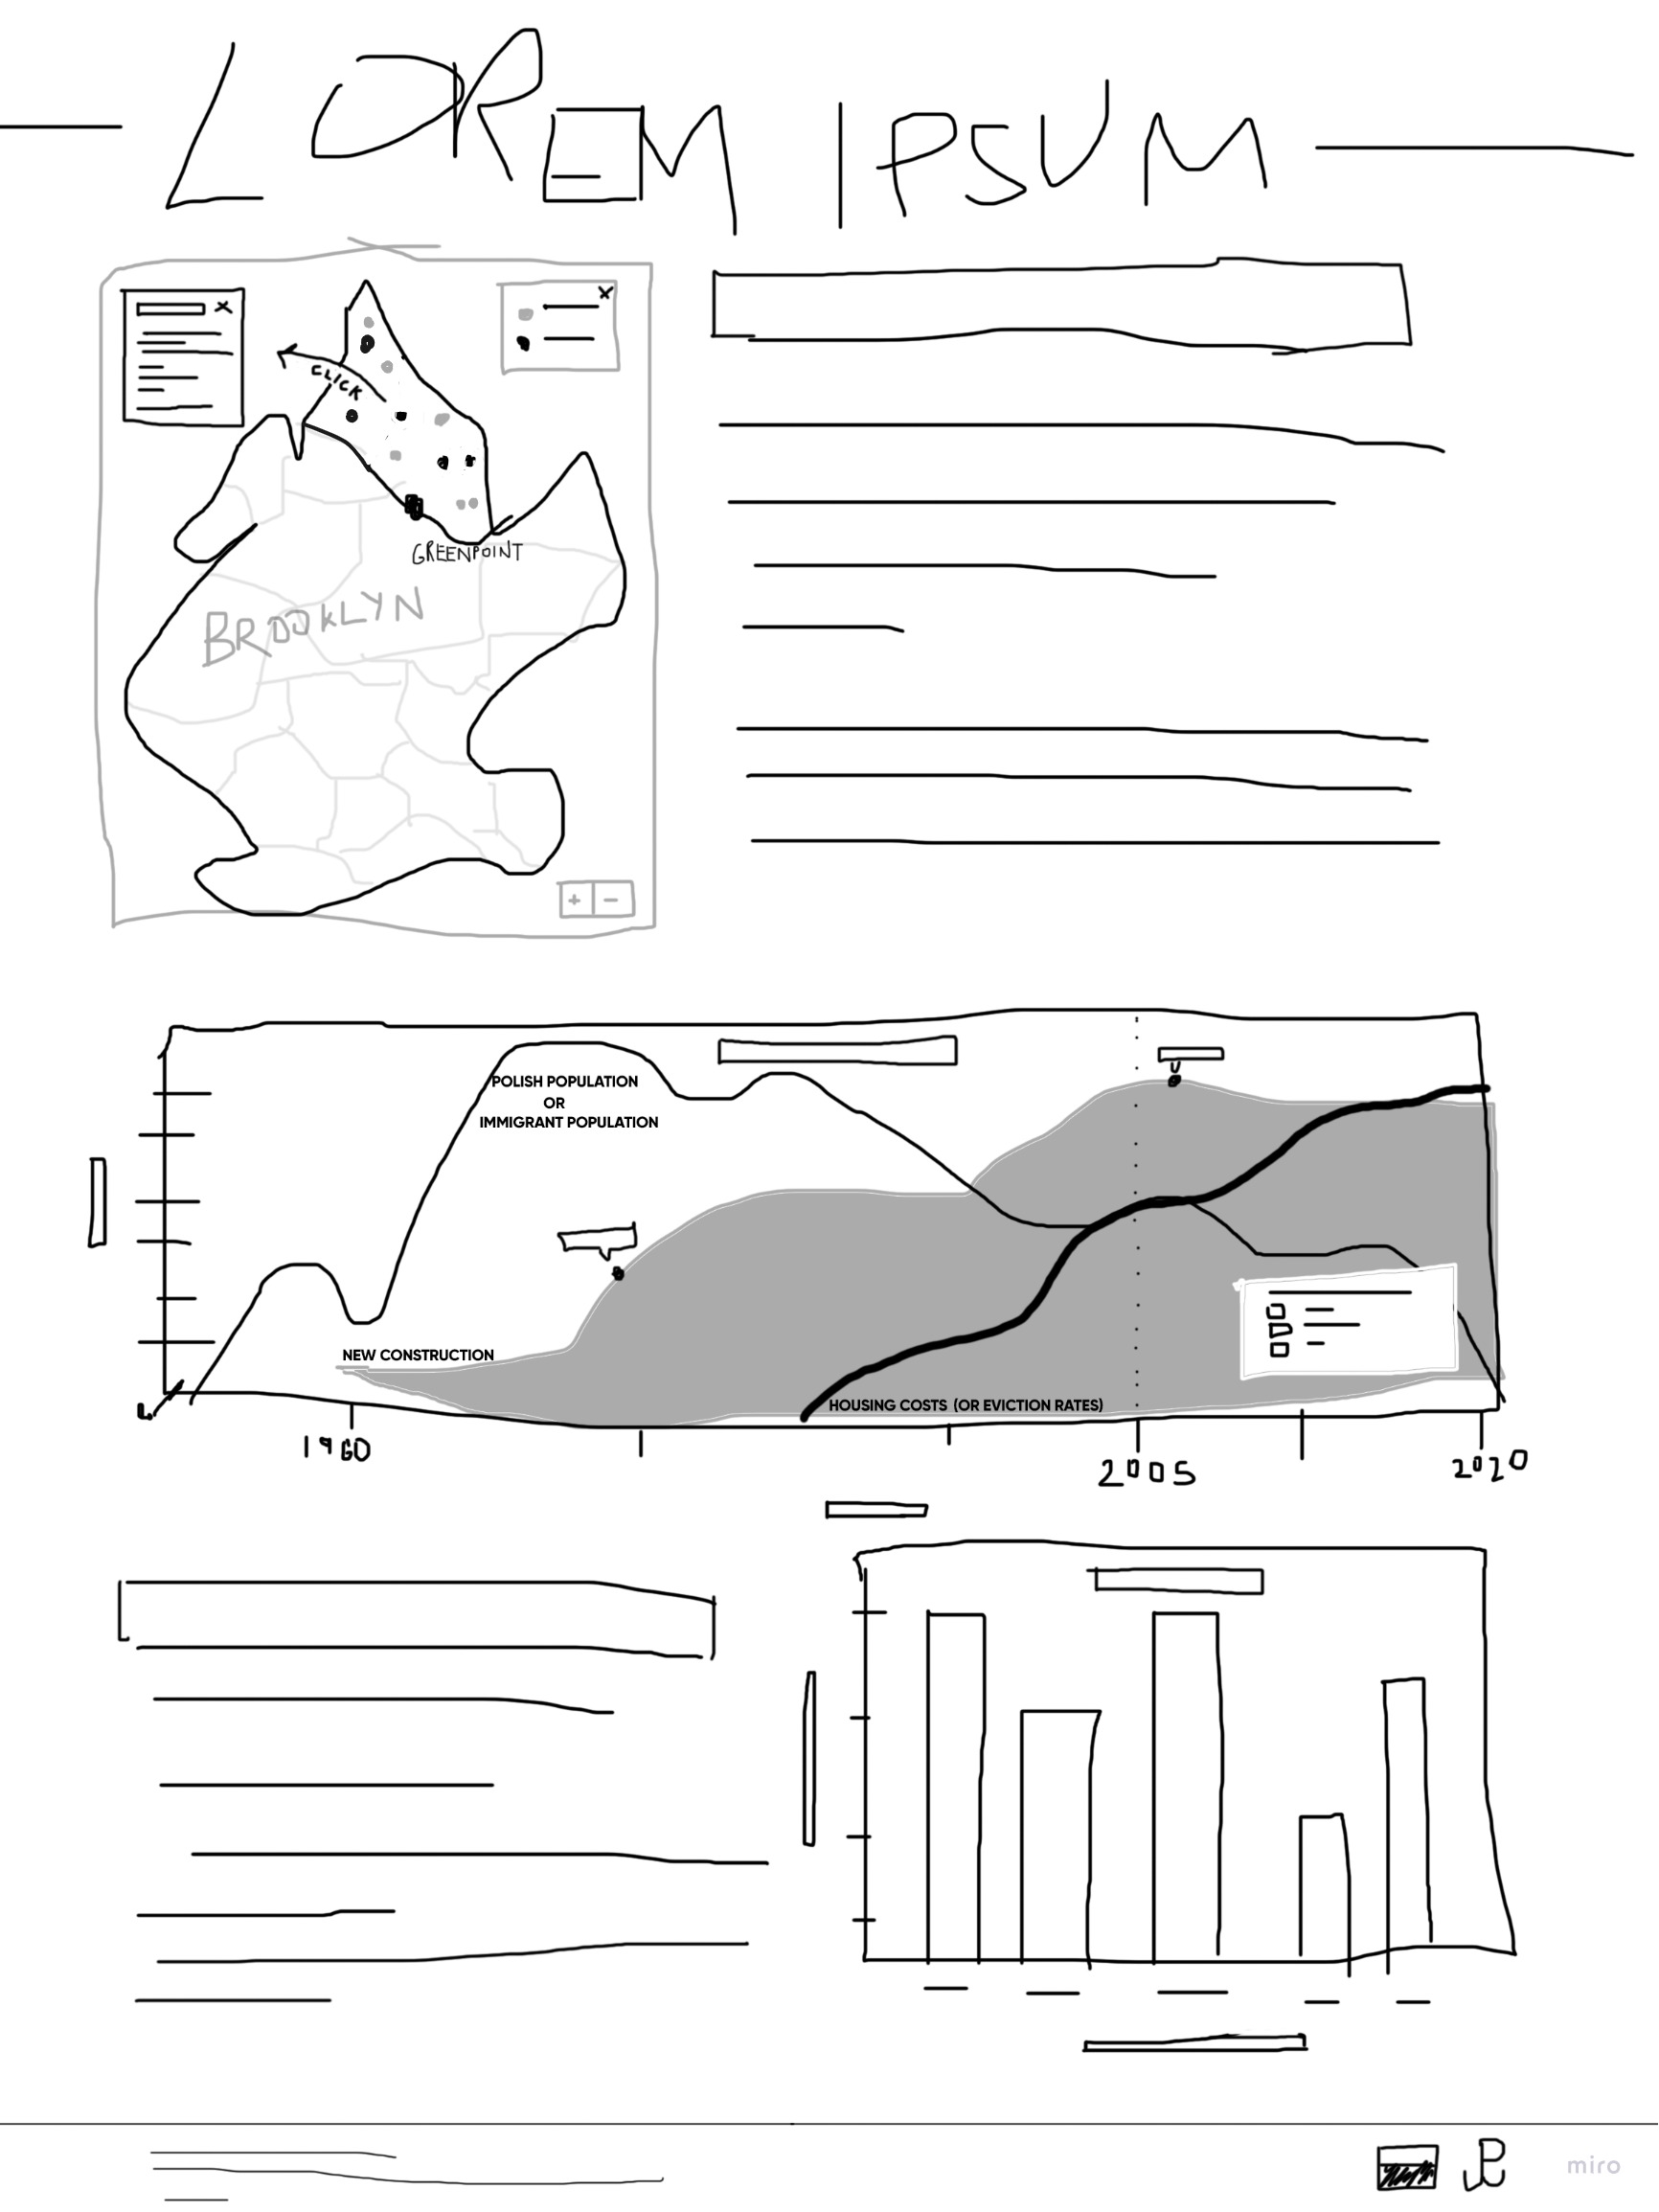 LOREM IPSUM
CLICK
GREENPOINT
BROOKLYN
+ −
POLISH POPULATION
OR
IMMIGRANT POPULATION
NEW CONSTRUCTION
HOUSING COSTS (OR EVICTION RATES)
1960 2005 2020
miro